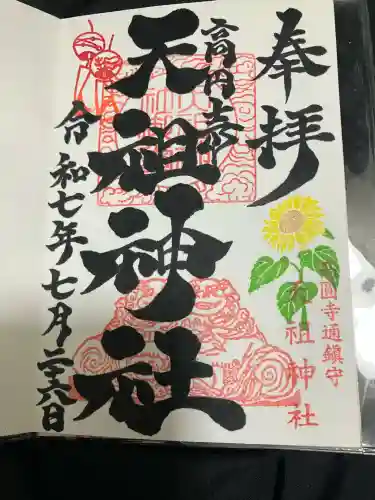 奉拝
高円寺
天祖神社
令和七年七月二十六日
高円寺通鎮守
天祖神社